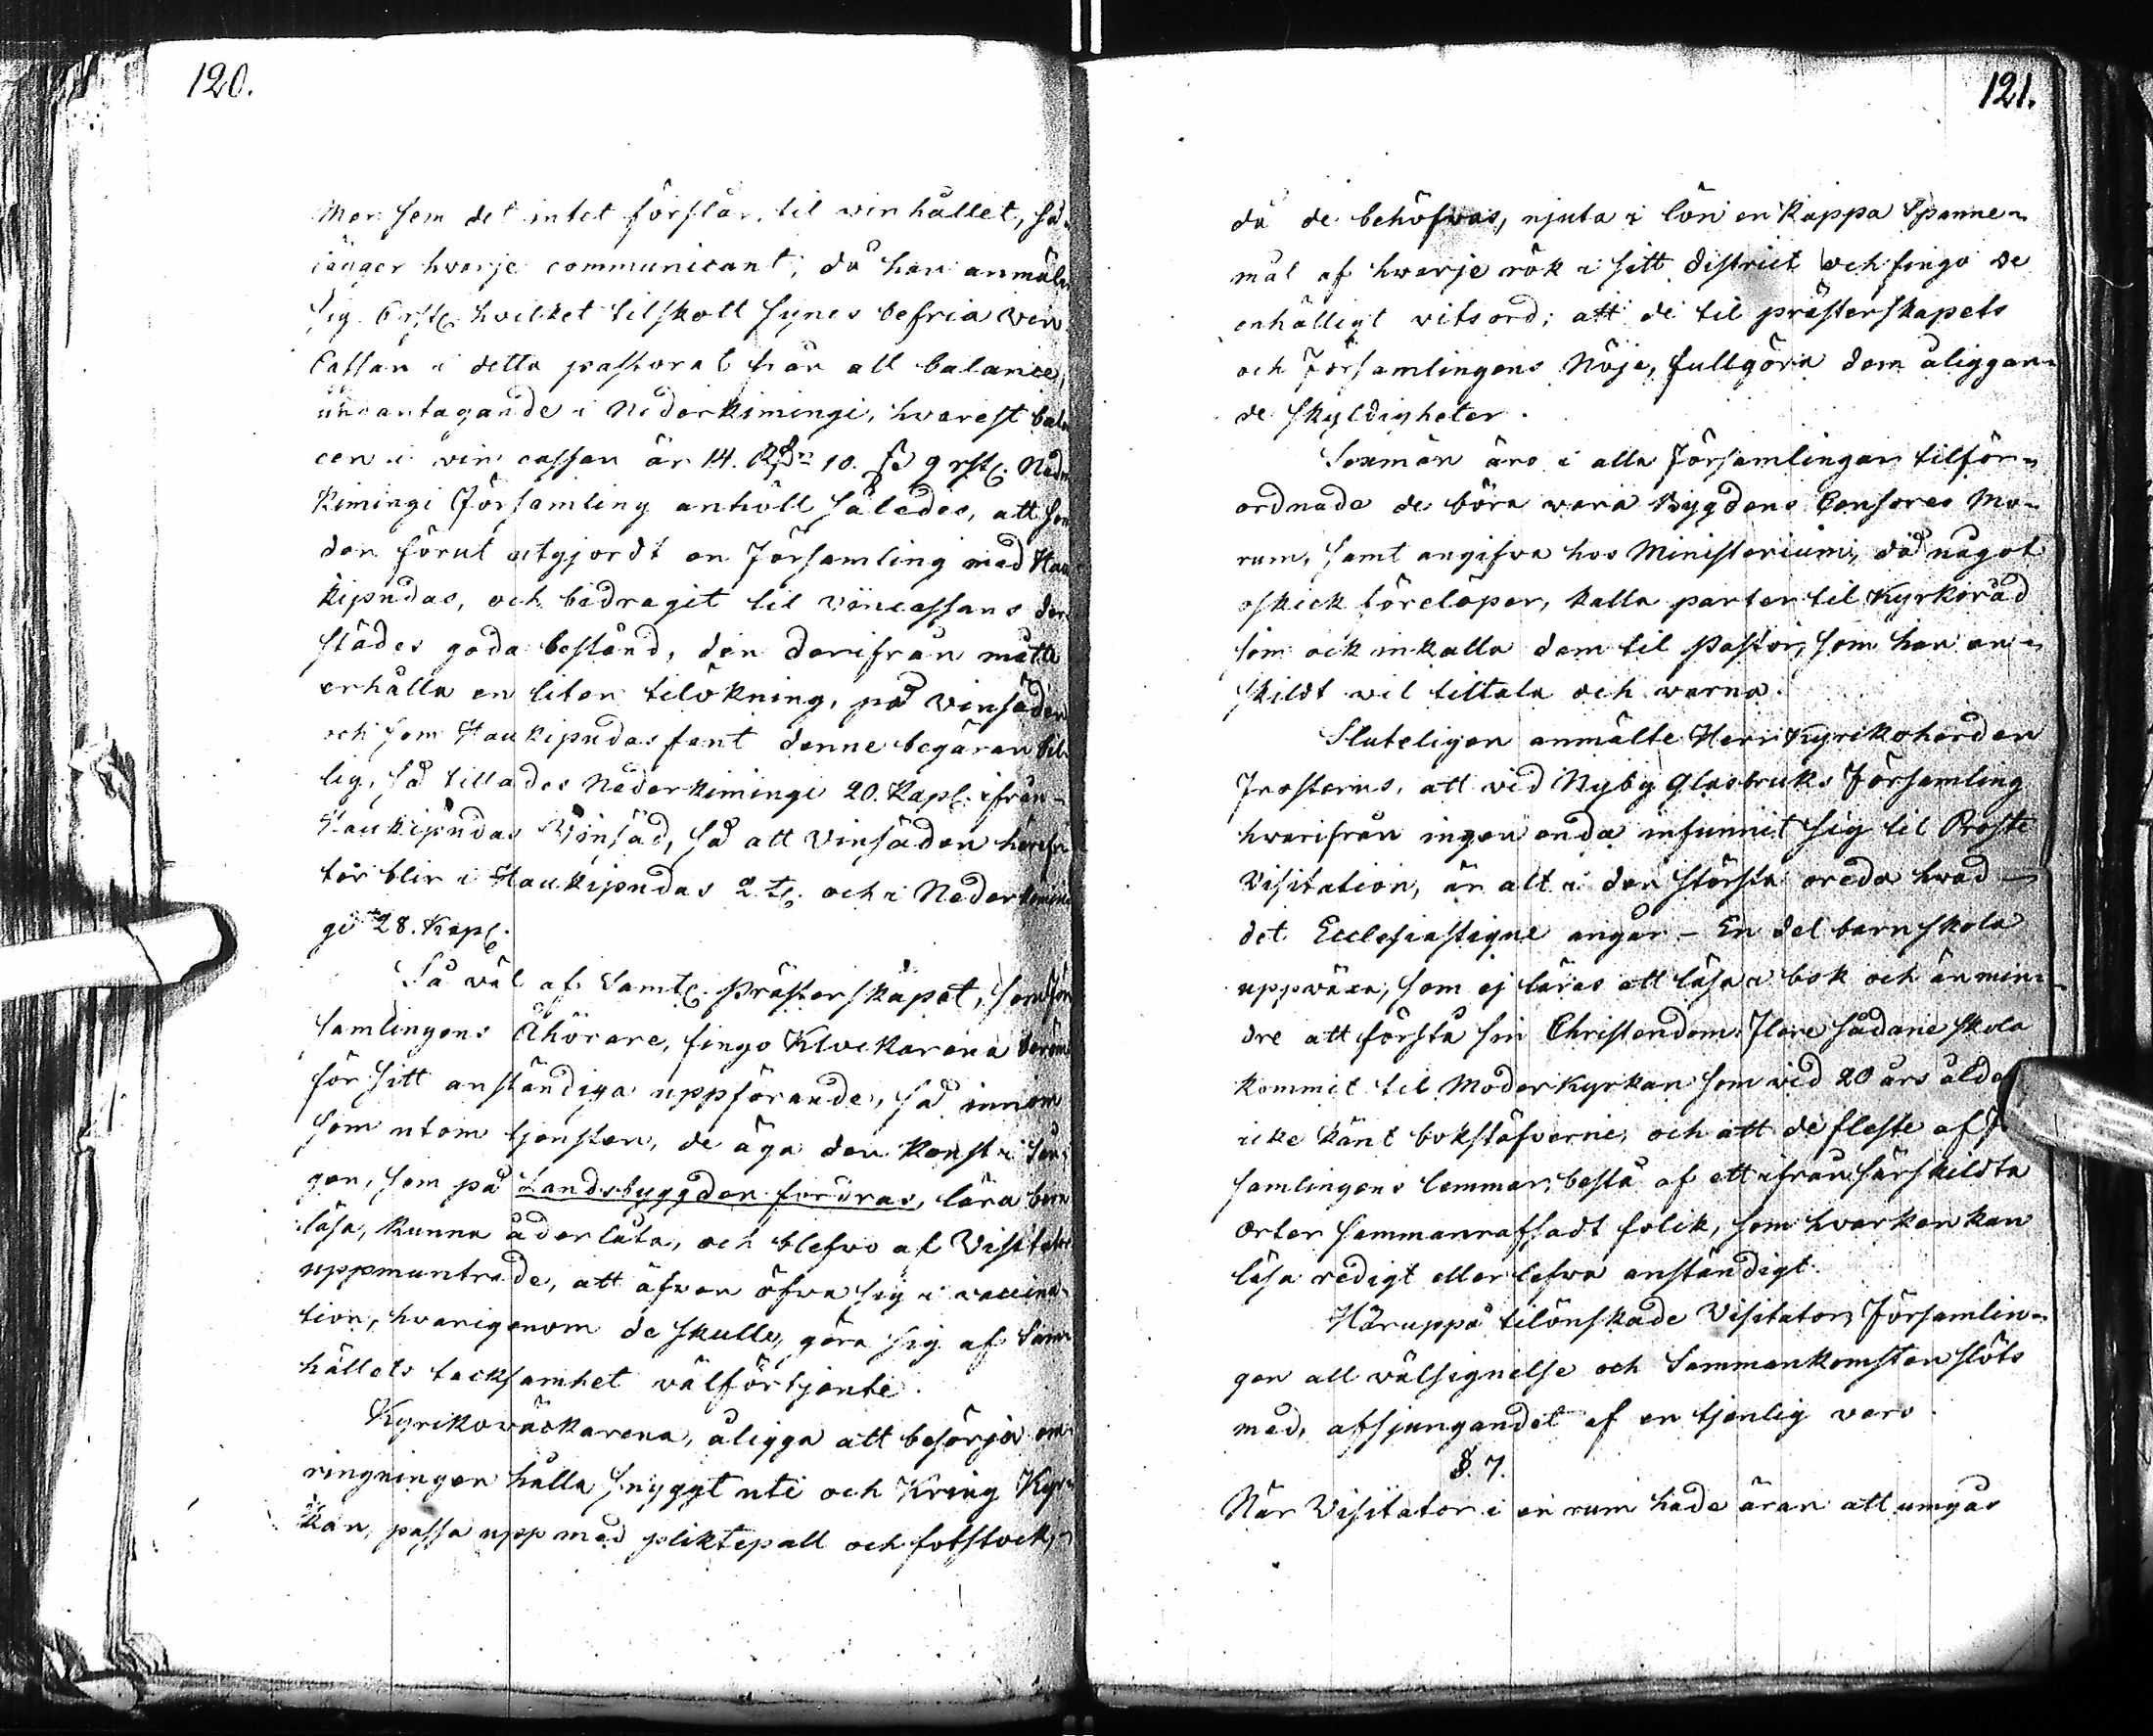 120.
Men som det intet förslår til vinhållet, så
länger hvarje communicant, då han anmäler
sig 6 rst. hvilket tilskott synes befria vin
Cassan i detta pastorat från all balance,
undantagande i Nederkimingi, hvarest balan
cen i vin cassan är 14. Rdr 10. ß 9 rst. Neder
Kimingi Församling anhöll således, att som
den förut utgjordt en Församling med Hau
kipudas, och bedragit til Vincassans der
städes goda bestånd, den derifrån måtte
erhålla en liten tilökning, på Vinsäden
och som Haukipudas fant denne begäran bil
lig, så tillades Nederkimingi 20. Kapl. ifrån
Haukipudas Vinsäd, så att Vinsäden häref
ter blir i Haukipudas 2 t. och i Nederkimin
gi 28. Kapl.
Så väl af Samtl. Prästerskapet, som För
samlingens Åhörare, fingo Klockarena beröm
för sitt anständiga uppförande, så innom
som utom tjensten, de äga den konst i sån
gen, som på Landsbyggden fordras, lära barn
läsa, kunna åderlåta, och blefvo af Visitator
uppmuntrade, att äfven öfva sig i vaccina
tion, hvarigenom de skulle göra sig af Sam
hällets tacksamhet välförtjente.
Kyrkoväckarena, åligga att besörja om
ringningen hålla snyggt uti och Kring Kyr
kan, passa upp med pliktepall och fotstock,
121.
då de behöfvas, njuta i lön en Kappa Spanne=
mål af hvarje rök i sitt district och fingo de
enhälligt vitsord; att de til prästerskapets
och Församlingens Nöje, fullgöra dem åliggan=
de skyldigheter.
Sexmän äro i alla Församlingar tilför=
ordnade de böra vara Bygdens Censores Mo=
rum, samt angifva hos Ministerium, då något
oskick förelöper, kalla parter til Kyrkoråd
som ock inkalla dem til Pastor, som han en=
skildt vil tiltala och varna.
Sluteligen anmälte Herr Kyrkoherden
Frosterus, att vid Nyby Glasbruks Församling
hvarifrån ingen enda infunnit sig til Prosti
Visitation, är alt i den största oreda hvad
det Ecclesiastique angår – En del barn skola
uppväxa, som ej läras att läsa i bok och än min=
dre att förstå sin Christendom. Flere sådane skola
kommit til Moder Kyrkan som vid 20 års ålder
icke känt bokstäfverne, och att de fleste af
samlingens lemmar, bestå af ett ifrån särskildta
orter sammanrafsadt folck, som hvarken kan
läsa redigt eller lefva anständigt.
Häruppå tilönskade Visitator, Församlin=
gen all välsignelse och Sammankomsten slöts
med, afsjungandet af en tjenlig vers
§. 7.
När Visitator i en rum hade äran att umgås